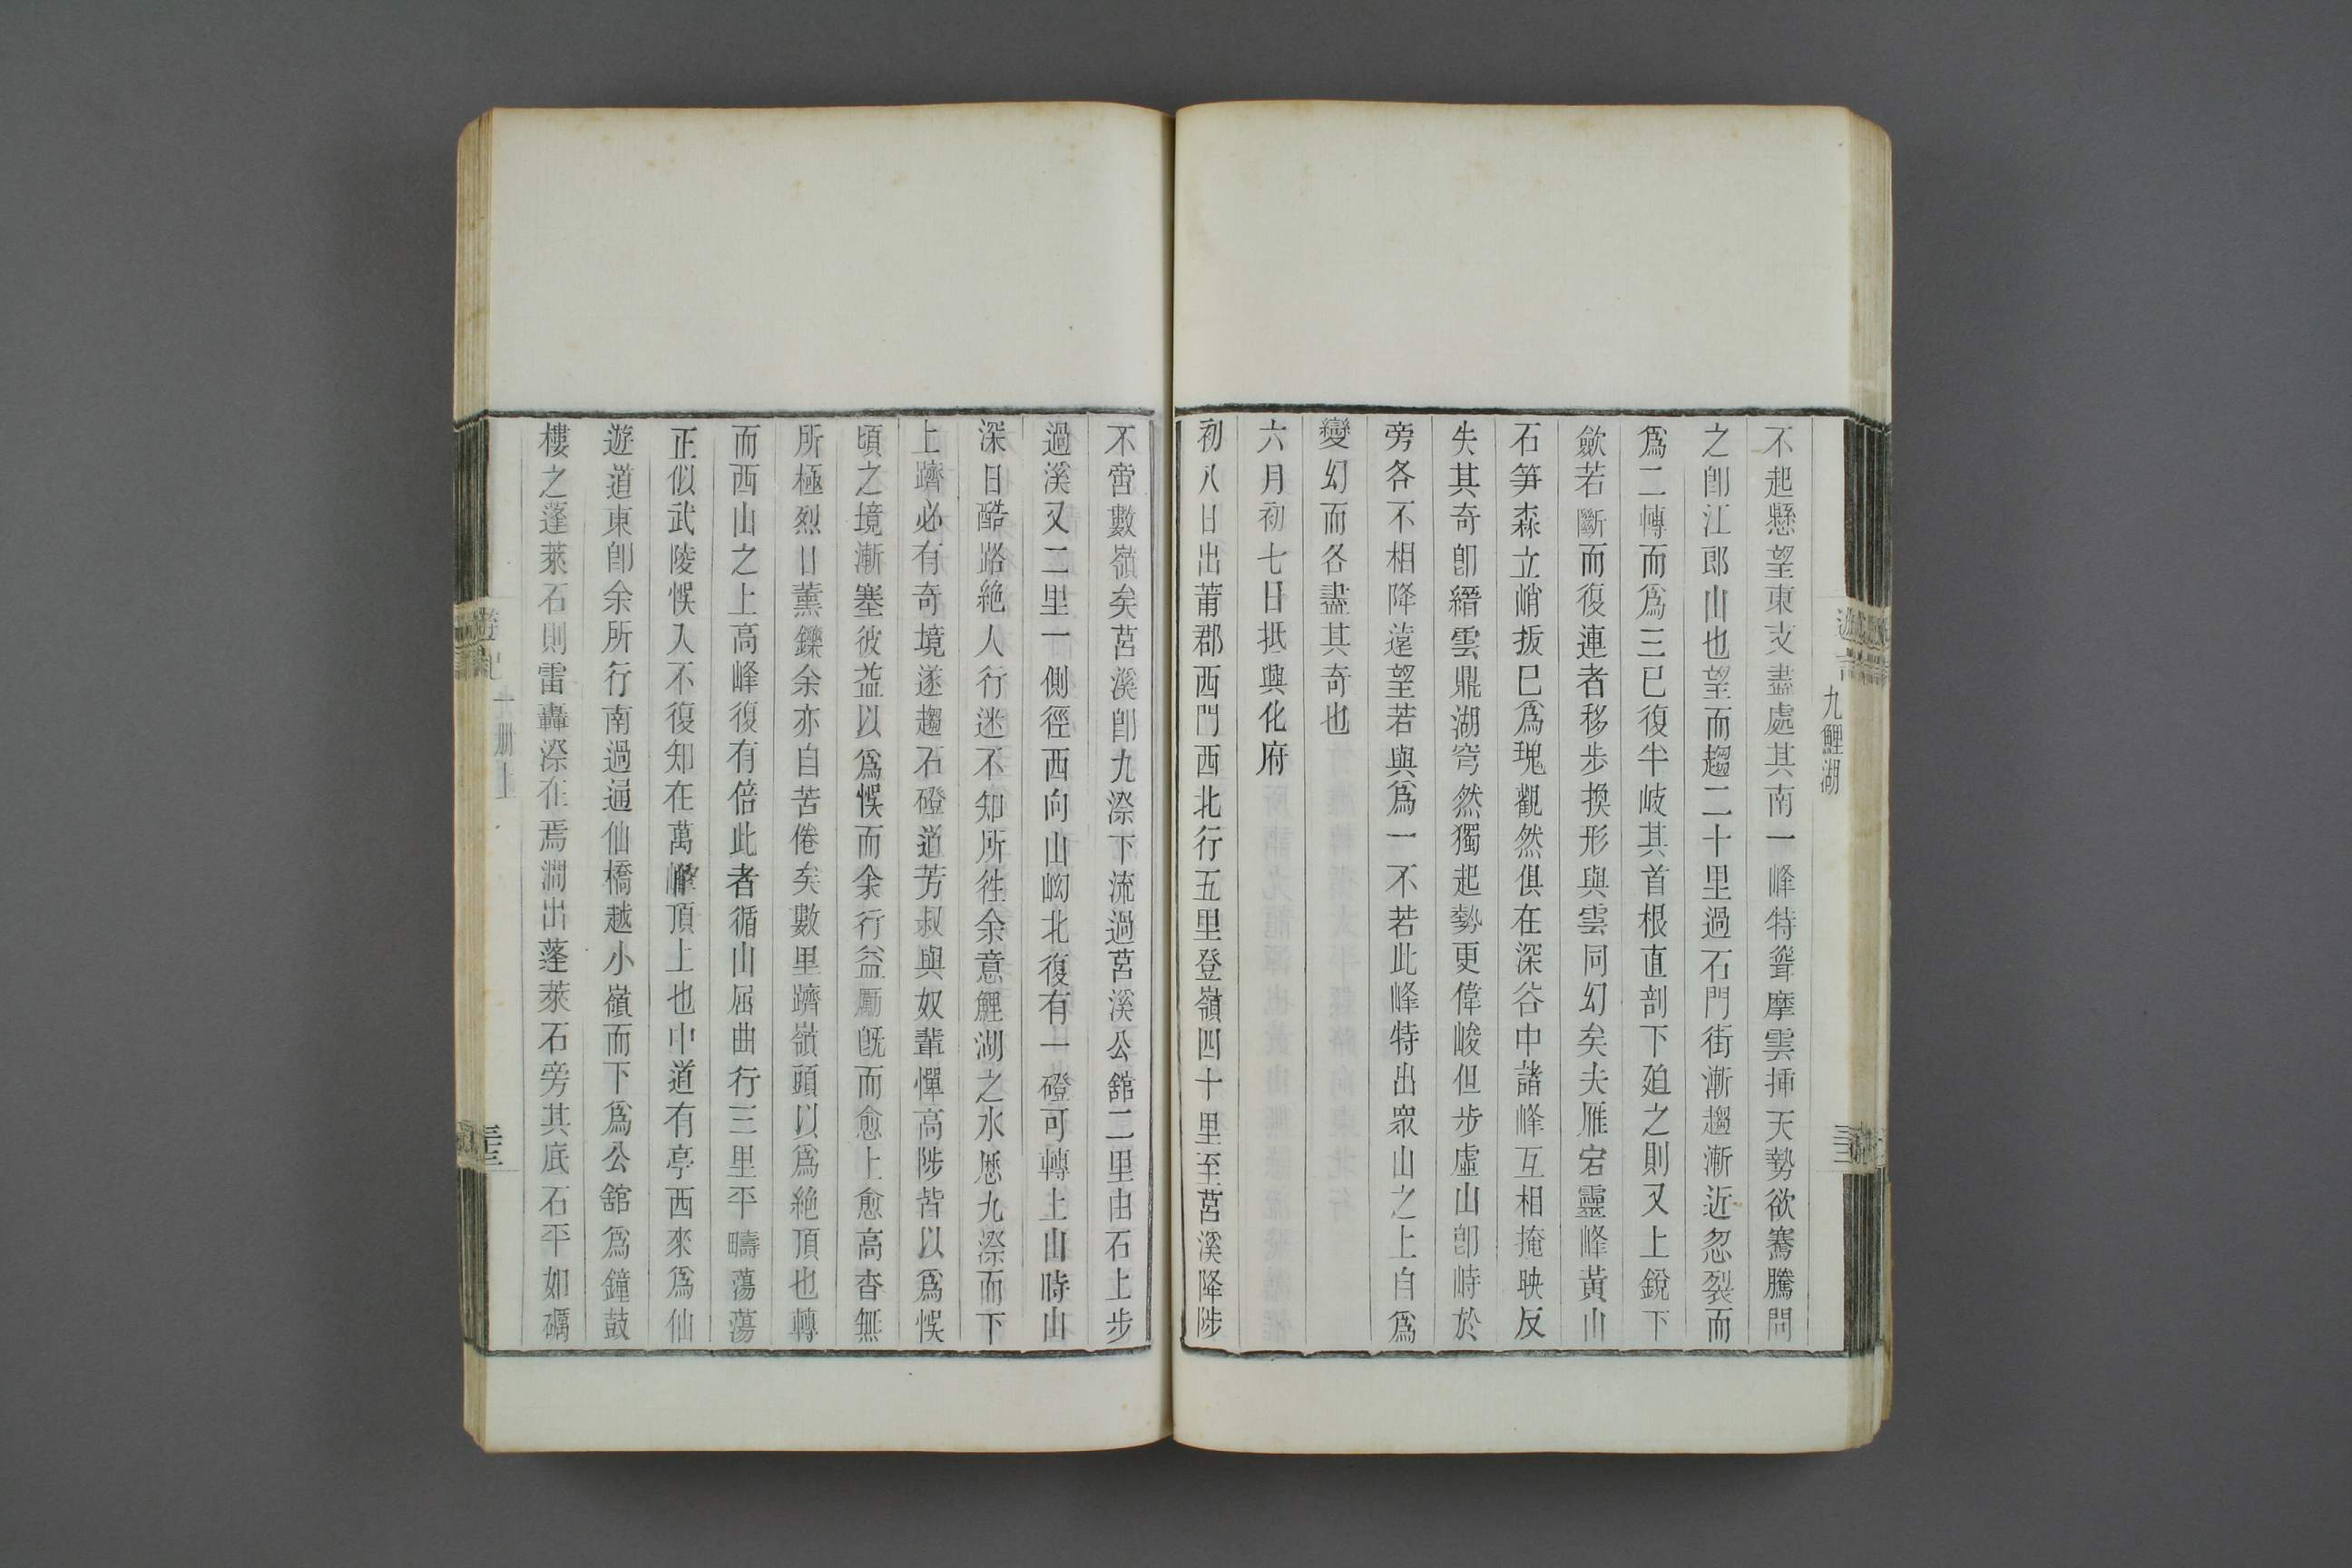 九鯉湖
不起懸望東支盡處其南一峰特聳摩雲揷天勢欲騫騰問
之卽江郎山也望而趨二十里過石門街漸趨漸近忽裂而
爲二轉而爲三已復半岐其首根直剖下廹之則又上銳下
歛若斷而復連者移步換形與雲同幻矣夫雁宕靈峰黃山
石笋森立峭拔已爲瑰觀然俱在深谷中諸峰互相掩映反
失其奇卽縉雲鼎湖穹然獨起勢更偉峻但步虛山卽峙於
旁各不相降遠望若與爲一不若此峰特出衆山之上自爲
變幻而各盡其奇也
六月初七日抵興化府
初八日出莆郡西門西北行五里登嶺四十里至莒溪降陟
不啻數嶺矣莒溪卽九漈下流過莒溪公舘二里由石上步
過溪又二里一側徑西向山坳北復有一磴可轉上山時山
深日酷路絶人行迷不知所徃余意鯉湖之水歷九漈而下
上躋必有奇境遂趨石磴道芳叔與奴輩憚高陟皆以爲悞
頃之境漸塞彼益以爲悞而余行益勵旣而愈上愈高杳無
所極烈日薰鑠余亦自苦倦矣數里躋嶺頭以爲絶頂也轉
而西山之上高峰復有倍此者循山屈曲行三里平疇蕩蕩
正似武陵悞入不復知在萬峰頂上也中道有亭西來爲仙
遊道東卽余所行南過通仙橋越小嶺而下爲公舘爲鐘鼓
樓之蓬萊石則雷轟漈在焉澗出蓬萊石旁其底石平如礪
遊記 一册上
三十三